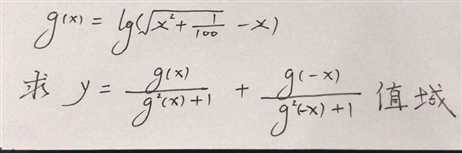 g(x) = lg(√(x²+1/100) - x)
求 y = g(x)/(g²(x)+1) + g(-x)/(g²(-x)+1) 值域